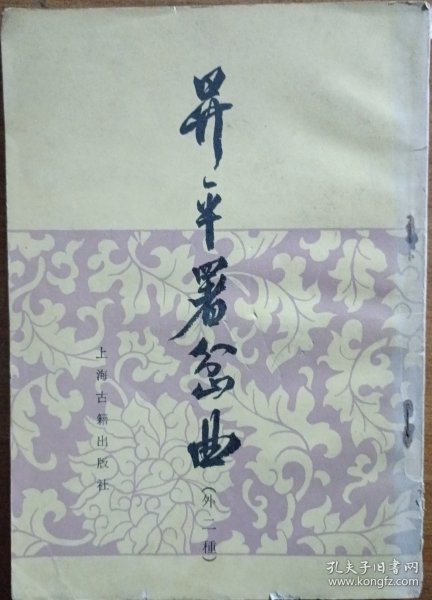 昇平署岔曲
(外二種)
上海古籍出版社
孔夫子旧书网
www.kongfz.com